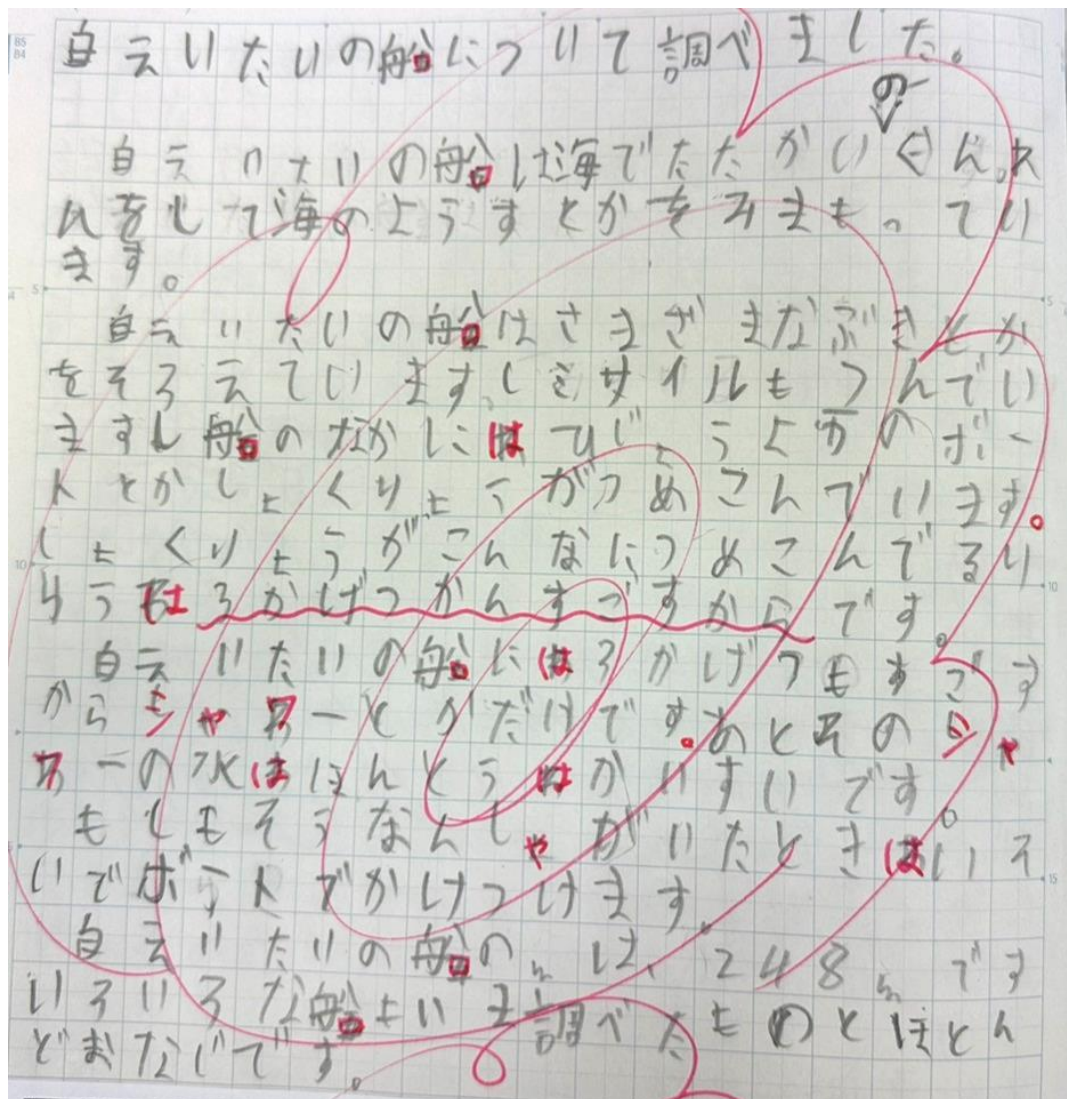 自えいたいの船について調べました。
の
自えいたいの船は海でたたかいくんれ
んをして海のようすとかをみまもってい
ます。
自えいたいの船はさまざまなぶきとか
をそろえていますしミサイルもつんでい
ますし船のなかにはひじょうようのボー
トとかしょくりょうがつめこんでいます。
しょくりょうがこんなにつめこんでるり
りうはろかげつかんすごすからです。
自えいたいの船にはろかげつもすごす
からシャワーとかだけです。あとそのシャ
ワーの水はほんとうはかいすいです。
もしもそうなんしゃがいたときはいそ
いでボートでかけつけます。
自えいたいの船のmは、248mです
いろいろな船よいま調べたものとほとん
どおなじです。